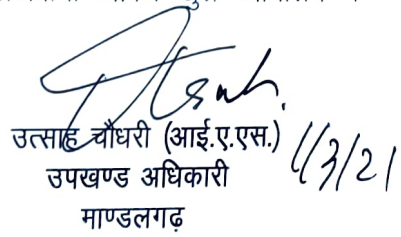 उत्साह चौधरी (आई.ए.एस.)
1/3/21
उपखण्ड अधिकारी
माण्डलगढ़